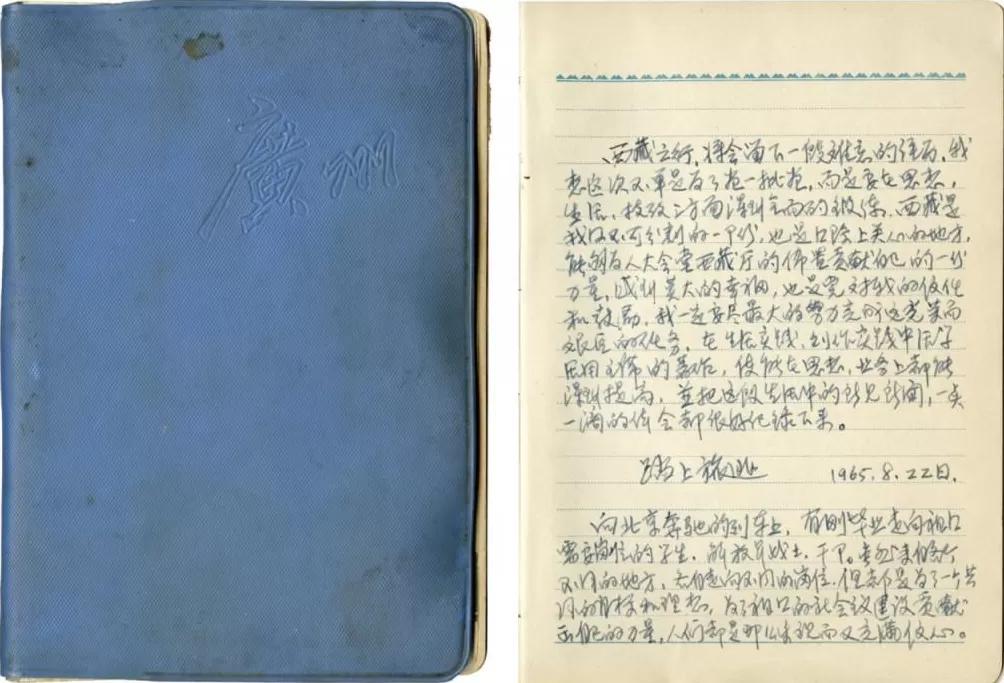 廣州
西藏之行,将会留下一段难忘的经历,我
想这次不单是为了一批,而是要在思想,
生活、技巧三方面得到全面的锻炼。西藏是
我国不可分割的一部份,也是的地方,
能够为人大会堂西藏厅的佈置贡献自己的一份
力量,感到莫大的幸福,也是党对我的信任
和鼓励,我一定要尽最大的努力完成这光荣而
艰巨的任务,在生活实践、创作实践中活学
活用主席的著作,使能在思想,业务上都能
得到提高,并把这段生活中的所见所闻,一点
一滴的体会都很好纪录下来。
踏上旅途 1965.8.22日.
向北京奔驰的列车上,有刚毕业走向祖口
需要岗位的学生,解放军战士,干部。
不同的地方,走向不同的岗位,但都是为了一个共
同的目标和理想,为了祖口的社会主义建设贡献
自己的力量,人们都是那么乐观而又充满信心。